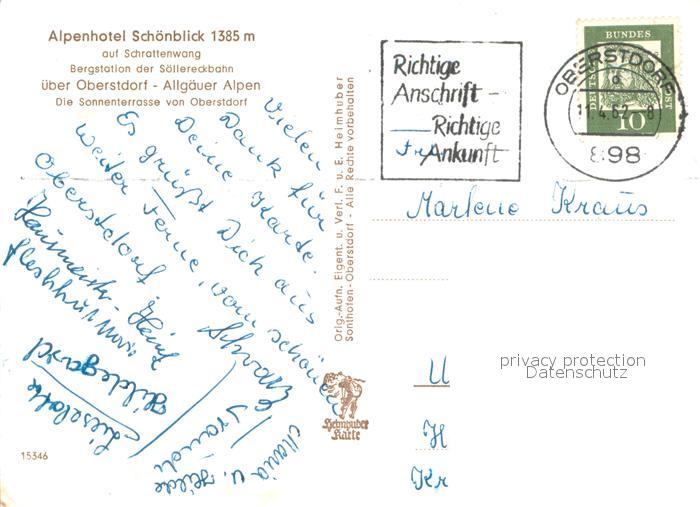 Alpenhotel Schönblick 1385 m
auf Schrattenwang
Bergstation der Söllereckbahn
über Oberstdorf - Allgäuer Alpen
Die Sonnenterrasse von Oberstdorf
Vielen
Dank für
Deine Karte.
Es grüßt Dich aus
weiter Ferne, vom schönen
Oberstdorf
Heinz
Schwarz
Hildegard
Lieselotte
Maria u. Hilde
15346
Orig.-Aufn. Eigent. u. Verl. F. u. E. Heimhuber
Sonthofen-Oberstdorf - Alle Rechte vorbehalten
Heimhuber
Karte
Richtige
Anschrift -
Richtige
Ankunft
OBERSTDORF
a
11.4.62 - 8
898
DEUTSCHE
BUNDES
10
Frl.
Marlene Kraus
privacy protection
Datenschutz
U
H
Kr